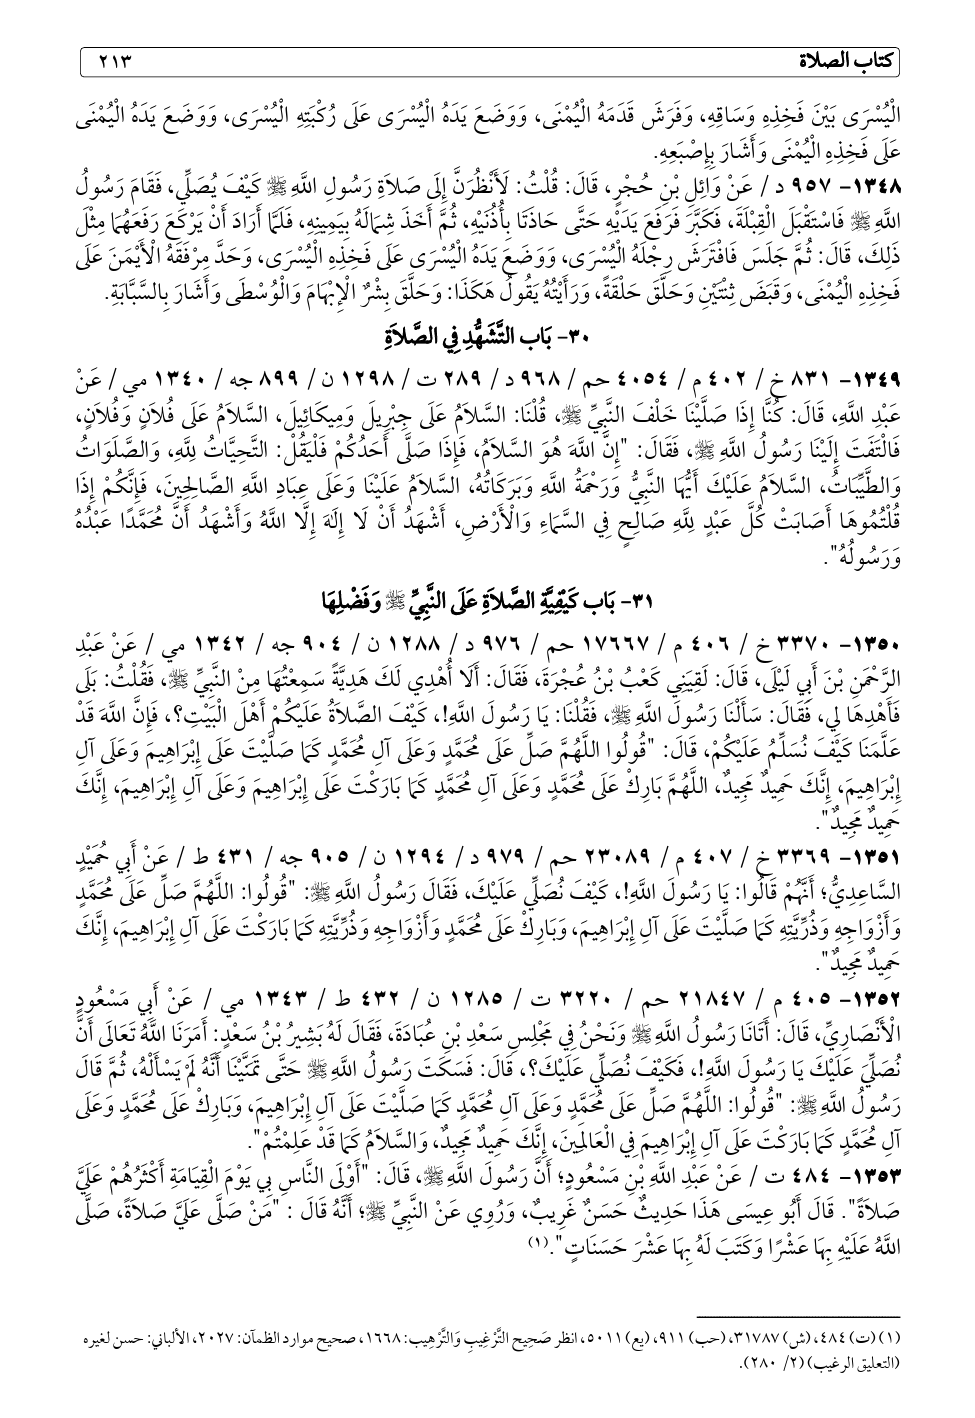 كتاب الصلاة ٢١٣
الْيُسْرَى بَيْنَ فَخِذِهِ وَسَاقِهِ، وَفَرَشَ قَدَمَهُ الْيُمْنَى، وَوَضَعَ يَدَهُ الْيُسْرَى عَلَى رُكْبَتِهِ الْيُسْرَى، وَوَضَعَ يَدَهُ الْيُمْنَى
عَلَى فَخِذِهِ الْيُمْنَى وَأَشَارَ بِإِصْبَعِهِ.
١٣٤٨- ٩٥٧ د / عَنْ وَائِلِ بْنِ حُجْرٍ، قَالَ: قُلْتُ: لَأَنْظُرَنَّ إِلَى صَلاَةِ رَسُولِ اللهِ ﷺ كَيْفَ يُصَلِّي، فَقَامَ رَسُولُ
اللهِ ﷺ فَاسْتَقْبَلَ الْقِبْلَةَ، فَكَبَّرَ فَرَفَعَ يَدَيْهِ حَتَّى حَاذَتَا بِأُذُنَيْهِ، ثُمَّ أَخَذَ شِمَالَهُ بِيَمِينِهِ، فَلَمَّا أَرَادَ أَنْ يَرْكَعَ رَفَعَهُمَا مِثْلَ
ذَلِكَ، قَالَ: ثُمَّ جَلَسَ فَافْتَرَشَ رِجْلَهُ الْيُسْرَى، وَوَضَعَ يَدَهُ الْيُسْرَى عَلَى فَخِذِهِ الْيُسْرَى، وَحَدَّ مِرْفَقَهُ الْأَيْمَنَ عَلَى
فَخِذِهِ الْيُمْنَى، وَقَبَضَ ثِنْتَيْنِ وَحَلَّقَ حَلْقَةً، وَرَأَيْتُهُ يَقُولُ هَكَذَا: وَحَلَّقَ بِشْرٌ الْإِبْهَامَ وَالْوُسْطَى وَأَشَارَ بِالسَّبَّابَةِ.
٣٠- بَاب التَّشَهُّدِ فِي الصَّلاَةِ
١٣٤٩- ٨٣١ خ / ٤٠٢ م / ٤٠٥٤ حم / ٩٦٨ د / ٢٨٩ ت / ١٢٩٨ ن / ٨٩٩ جه / ١٣٤٠ مي / عَنْ
عَبْدِ اللهِ، قَالَ: كُنَّا إِذَا صَلَّيْنَا خَلْفَ النَّبِيِّ ﷺ، قُلْنَا: السَّلاَمُ عَلَى جِبْرِيلَ وَمِيكَائِيلَ، السَّلاَمُ عَلَى فُلاَنٍ وَفُلاَنٍ،
فَالْتَفَتَ إِلَيْنَا رَسُولُ اللهِ ﷺ، فَقَالَ: "إِنَّ اللهَ هُوَ السَّلاَمُ، فَإِذَا صَلَّى أَحَدُكُمْ فَلْيَقُلْ: التَّحِيَّاتُ لِلَّهِ، وَالصَّلَوَاتُ
وَالطَّيِّبَاتُ، السَّلاَمُ عَلَيْكَ أَيُّهَا النَّبِيُّ وَرَحْمَةُ اللهِ وَبَرَكَاتُهُ، السَّلاَمُ عَلَيْنَا وَعَلَى عِبَادِ اللهِ الصَّالِحِينَ، فَإِنَّكُمْ إِذَا
قُلْتُمُوهَا أَصَابَتْ كُلَّ عَبْدٍ لِلَّهِ صَالِحٍ فِي السَّمَاءِ وَالْأَرْضِ، أَشْهَدُ أَنْ لَا إِلَهَ إِلَّا اللهُ وَأَشْهَدُ أَنَّ مُحَمَّدًا عَبْدُهُ
وَرَسُولُهُ".
٣١- بَاب كَيْفِيَّةِ الصَّلاَةِ عَلَى النَّبِيِّ ﷺ وَفَضْلِهَا
١٣٥٠- ٣٣٧٠ خ / ٤٠٦ م / ١٧٦٦٧ حم / ٩٧٦ د/ ١٢٨٨ ن / ٩٠٤ جه / ١٣٤٢ مي / عَنْ عَبْدِ
الرَّحْمَنِ بْنَ أَبِي لَيْلَى، قَالَ: لَقِيَنِي كَعْبُ بْنُ عُجْرَةَ، فَقَالَ: أَلَا أُهْدِي لَكَ هَدِيَّةً سَمِعْتُهَا مِنْ النَّبِيِّ ﷺ، فَقُلْتُ: بَلَى
فَأَهْدِهَا لِي، فَقَالَ: سَأَلْنَا رَسُولَ اللهِ ﷺ، فَقُلْنَا: يَا رَسُولَ اللهِ!، كَيْفَ الصَّلاَةُ عَلَيْكُمْ أَهْلَ الْبَيْتِ؟، فَإِنَّ اللهَ قَدْ
عَلَّمَنَا كَيْفَ نُسَلِّمُ عَلَيْكُمْ، قَالَ: "قُولُوا اللهُمَّ صَلِّ عَلَى مُحَمَّدٍ وَعَلَى آلِ مُحَمَّدٍ كَمَا صَلَّيْتَ عَلَى إِبْرَاهِيمَ وَعَلَى آلِ
إِبْرَاهِيمَ، إِنَّكَ حَمِيدٌ مَجِيدٌ، اللهُمَّ بَارِكْ عَلَى مُحَمَّدٍ وَعَلَى آلِ مُحَمَّدٍ كَمَا بَارَكْتَ عَلَى إِبْرَاهِيمَ وَعَلَى آلِ إِبْرَاهِيمَ، إِنَّكَ
حَمِيدٌ مَجِيدٌ".
١٣٥١- ٣٣٦٩ خ / ٤٠٧ م / ٢٣٠٨٩ حم / ٩٧٩ د/ ١٢٩٤ ن / ٩٠٥ جه / ٤٣١ ط / عَنْ أَبِي حُمَيْدٍ
السَّاعِدِيُّ؛ أَنَّهُمْ قَالُوا: يَا رَسُولَ اللهِ!، كَيْفَ نُصَلِّي عَلَيْكَ، فَقَالَ رَسُولُ اللهِ ﷺ: "قُولُوا: اللهُمَّ صَلِّ عَلَى مُحَمَّدٍ
وَأَزْوَاجِهِ وَذُرِّيَّتِهِ كَمَا صَلَّيْتَ عَلَى آلِ إِبْرَاهِيمَ، وَبَارِكْ عَلَى مُحَمَّدٍ وَأَزْوَاجِهِ وَذُرِّيَّتِهِ كَمَا بَارَكْتَ عَلَى آلِ إِبْرَاهِيمَ، إِنَّكَ
حَمِيدٌ مَجِيدٌ".
١٣٥٢- ٤٠٥ م / ٢١٨٤٧ حم / ٣٢٢٠ ت / ١٢٨٥ ن / ٤٣٢ ط / ١٣٤٣ مي / عَنْ أَبِي مَسْعُودٍ
الْأَنْصَارِيِّ، قَالَ: أَتَانَا رَسُولُ اللهِ ﷺ وَنَحْنُ فِي مَجْلِسِ سَعْدِ بْنِ عُبَادَةَ، فَقَالَ لَهُ بَشِيرُ بْنُ سَعْدٍ: أَمَرَنَا اللهُ تَعَالَى أَنَّ
نُصَلِّيَ عَلَيْكَ يَا رَسُولَ اللهِ!، فَكَيْفَ نُصَلِّي عَلَيْكَ؟، قَالَ: فَسَكَتَ رَسُولُ اللهِ ﷺ حَتَّى تَمَنَّيْنَا أَنَّهُ لَمْ يَسْأَلْهُ، ثُمَّ قَالَ
رَسُولُ اللهِ ﷺ: "قُولُوا: اللهُمَّ صَلِّ عَلَى مُحَمَّدٍ وَعَلَى آلِ مُحَمَّدٍ كَمَا صَلَّيْتَ عَلَى آلِ إِبْرَاهِيمَ، وَبَارِكْ عَلَى مُحَمَّدٍ وَعَلَى
آلِ مُحَمَّدٍ كَمَا بَارَكْتَ عَلَى آلِ إِبْرَاهِيمَ فِي الْعَالَمِينَ، إِنَّكَ حَمِيدٌ مَجِيدٌ، وَالسَّلاَمُ كَمَا قَدْ عَلِمْتُمْ".
١٣٥٣- ٤٨٤ ت / عَنْ عَبْدِ اللهِ بْنِ مَسْعُودٍ؛ أَنَّ رَسُولَ اللهِ ﷺ، قَالَ: "أَوْلَى النَّاسِ بِي يَوْمَ الْقِيَامَةِ أَكْثَرُهُمْ عَلَيَّ
صَلاَةً". قَالَ أَبُو عِيسَى هَذَا حَدِيثٌ حَسَنٌ غَرِيبٌ، وَرُوِي عَنْ النَّبِيِّ ﷺ؛ أَنَّهُ قَالَ : "مَنْ صَلَّى عَلَيَّ صَلاَةً، صَلَّى
اللهُ عَلَيْهِ بِهَا عَشْرًا وَكَتَبَ لَهُ بِهَا عَشْرَ حَسَنَاتٍ".(١)
(١) (ت) ٤٨٤، (ش) ٣١٧٨٧، (حب) ٩١١، (يع) ٥٠١١، انظر صَحِيح التَّرْغِيبِ وَالتَّرْهِيب: ١٦٦٨، صحيح موارد الظمآن: ٢٠٢٧، الألباني: حسن لغيره
(التعليق الرغيب) (٢/ ٢٨٠).